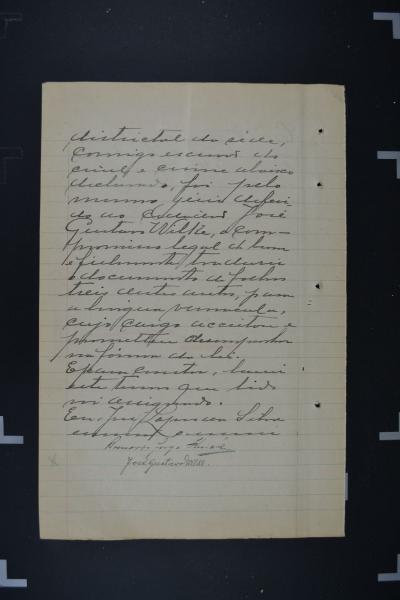 districtal da séde,
commigo escrivão do
civel e crime abaixo
declarado, foi pelo
mesmo juiz deferi-
do ao cidadão José
Gustavo Wilke, o com-
promisso legal de bem
e fielmente traduzir
o documento de folhas
treis destes autos, para
a lingua vernacula,
cujo cargo acceitou e
prometteu desempenhar
na fórma da lei.
E para constar, lavrei
este termo que lido
vai assignado.
Eu, José da Silva
escrivão
José Gustavo Wilke.